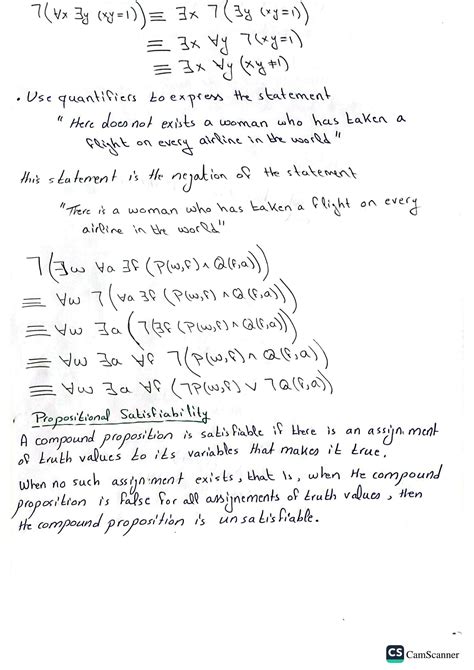 ⅂(∀x ∃y (xy=1)) ≡ ∃x ⅂(∃y (xy=1))
≡ ∃x ∀y ⅂(xy=1)
≡ ∃x ∀y (xy≠1)
• Use quantifiers to express the statement
"Here does not exists a woman who has taken a
flight on every airline in the world"
this statement is the negation of the statement
"There is a woman who has taken a flight on every
airline in the world"
⅂(∃w ∀a ∃f (P(w,f) ∧ Q(f,a)))
≡ ∀w ⅂(∀a ∃f (P(w,f) ∧ Q(f,a)))
≡ ∀w ∃a (⅂(∃f (P(w,f) ∧ Q(f,a)))
≡ ∀w ∃a ∀f ⅂(P(w,f) ∧ Q(f,a))
≡ ∀w ∃a ∀f (⅂P(w,f) ∨ ⅂Q(f,a))
• Propositional Satisfiability
A compound proposition is satisfiable if there is an assignment
of truth values to its variables that makes it true.
When no such assignment exists, that is, when the compound
proposition is false for all assignements of truth values, then
the compound proposition is unsatisfiable.
CS CamScanner